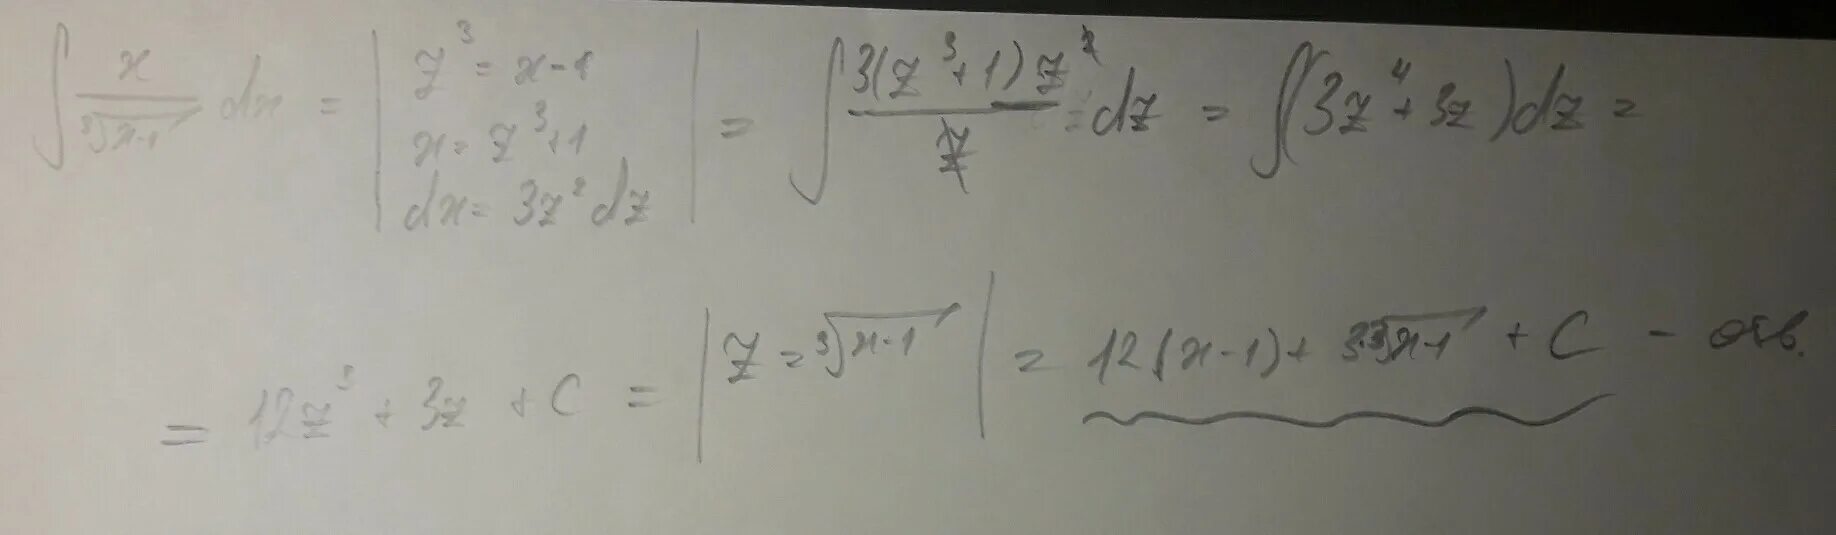 ∫ x/∛(x-1) dx = | z³ = x-1; x = z³+1; dx = 3z² dz | = ∫ 3(z³+1)z²/z dz = ∫(3z⁴ + 3z)dz =
= 12z³ + 3z + C = | z = ∛(x-1) | = 12(x-1) + 3∛(x-1) + C - отв.